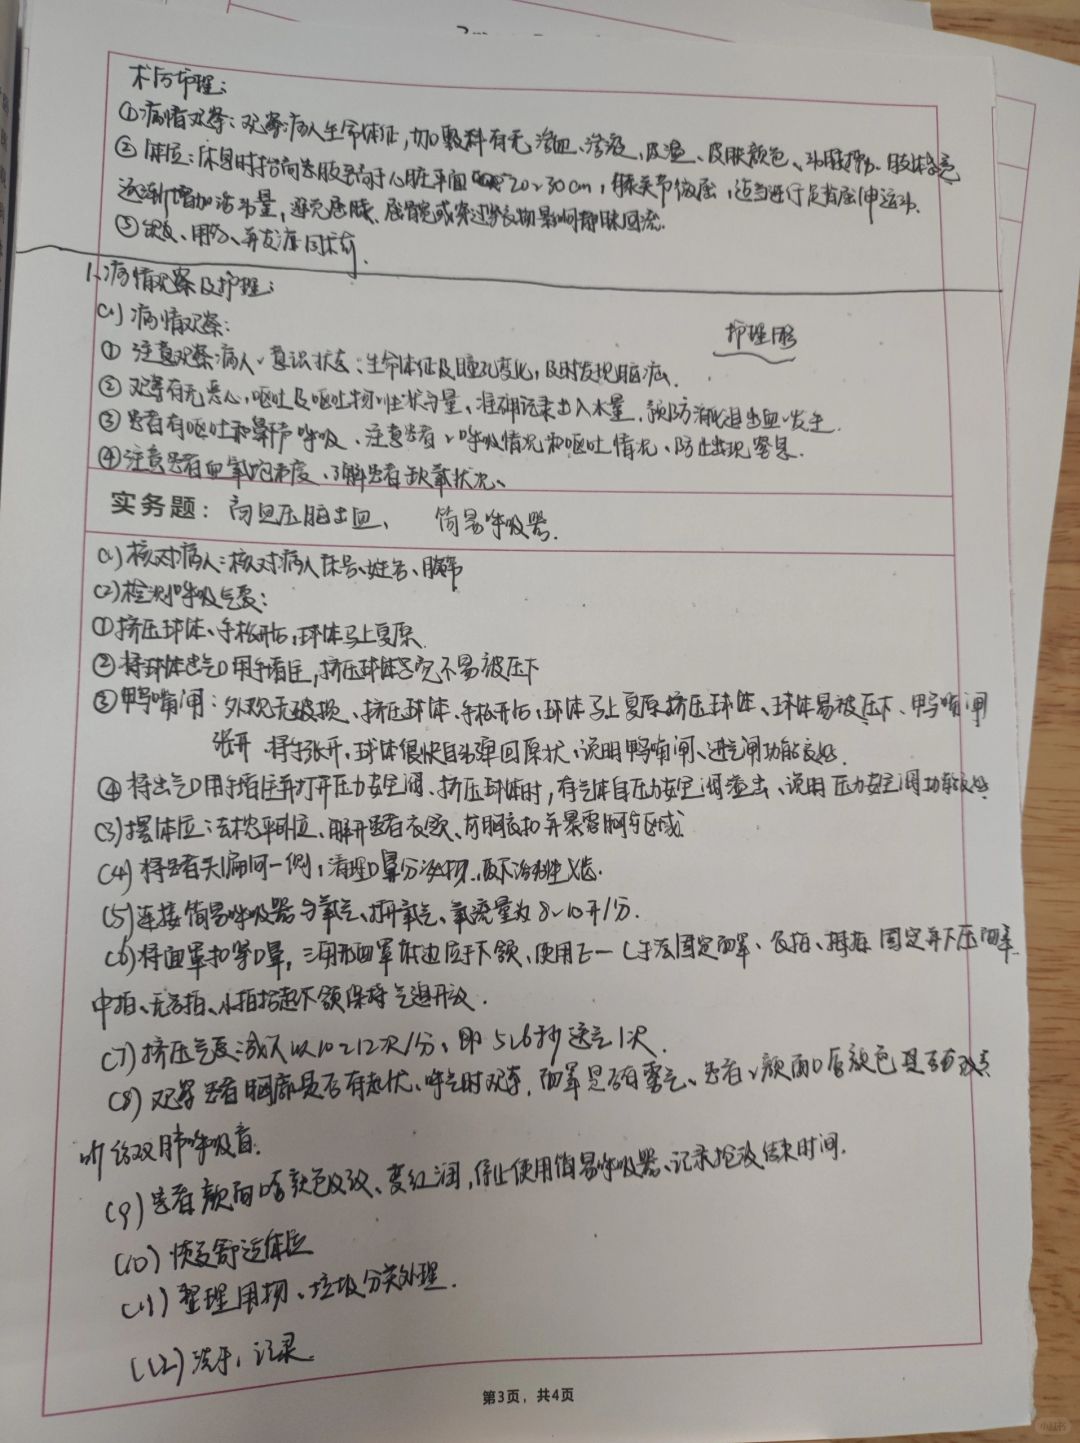 术后护理：
①病情观察：观察病人生命体征，加敷料有无渗血、渗液、皮温、皮肤颜色、动脉搏动、肢体
②体位：休息时抬高患肢至高于心脏平面20~30cm，膝关节微屈，适当进行足背屈伸运动。
逐渐增加活动量，避免屈膝、屈髋或穿过紧衣物影响静脉回流。
③饮食、用药、并发症同术前。
1.病情观察及护理：
(1)病情观察：
护理题
①注意观察病人、意识状态：生命体征及瞳孔变化，及时发现脑疝、
②观察有无恶心，呕吐及呕吐物、性状与量、准确记录出入水量、预防消化道出血、发生
③患者有呕吐和鼾声呼吸、注意患者、呼吸情况和呕吐情况、防止出现窒息.
④注意患者血氧饱和度、了解患者缺氧状况、
实务题：高血压脑出血、 简易呼吸器.
(1)核对病人：核对病人床号、姓名、腕带
(2)检测呼吸气囊：
①挤压球体、手松开后，球体马上复原.
②将球体出气口用手堵住，挤压球体 不易被压下
③鸭嘴阀：外观无破损、挤压球体、手松开后，球体马上复原挤压球体、球体易被压下、鸭嘴阀
张开 将手张开，球体很快自动弹回原状、说明鸭嘴阀、进气阀功能良好.
④将出气口用手堵住并打开压力安全阀、挤压球体时，有气体自压力安全阀溢出、说明压力安全阀功能良好
(3)摆体位：去枕平卧位、解开患者衣领、前胸衣扣并暴露胸部区域
(4)将患者头偏向一侧，清理口鼻分泌物、取下活动性义齿.
(5)连接简易呼吸器与氧气、打开氧气、氧流量为8~10升/分.
(6)将面罩扣紧口鼻，三角形面罩底边位于下颌、使用E-C手法固定面罩、食指、拇指 固定并下压面罩
中指、无名指、小指抬起下颌保持气道开放.
(7)挤压气囊：成人以10~12次/分、即5~6秒送气1次.
(8)观察患者胸廓是否有起伏、呼气时观察，面罩是否有雾气、患者、颜面口唇颜色是否有改善
听诊双肺呼吸音.
(9)患者颜面口唇颜色改致、变红润，停止使用简易呼吸器、记录抢救结束时间.
(10)恢复舒适体位
(11)整理用物、垃圾分类处理.
(12)洗手，记录
第3页，共4页
小红书